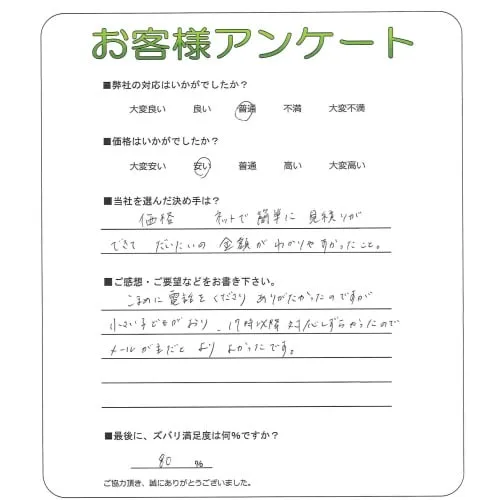 お客様アンケート
■弊社の対応はいかがでしたか？
大変良い 良い 普通 不満 大変不満
■価格はいかがでしたか？
大変安い 安い 普通 高い 大変高い
■当社を選んだ決め手は？
価格 ネットで簡単に見積りが
できて だいたいの金額がわかりやすかったこと。
■ご感想・ご要望などをお書き下さい。
こまめに電話をくださり ありがたかったのですが
小さい子どもがおり、17時以降対応しずらかったので
メールが主だと より よかったです。
■最後に、ズバリ満足度は何%ですか？
80 %
ご協力頂き、誠にありがとうございました。